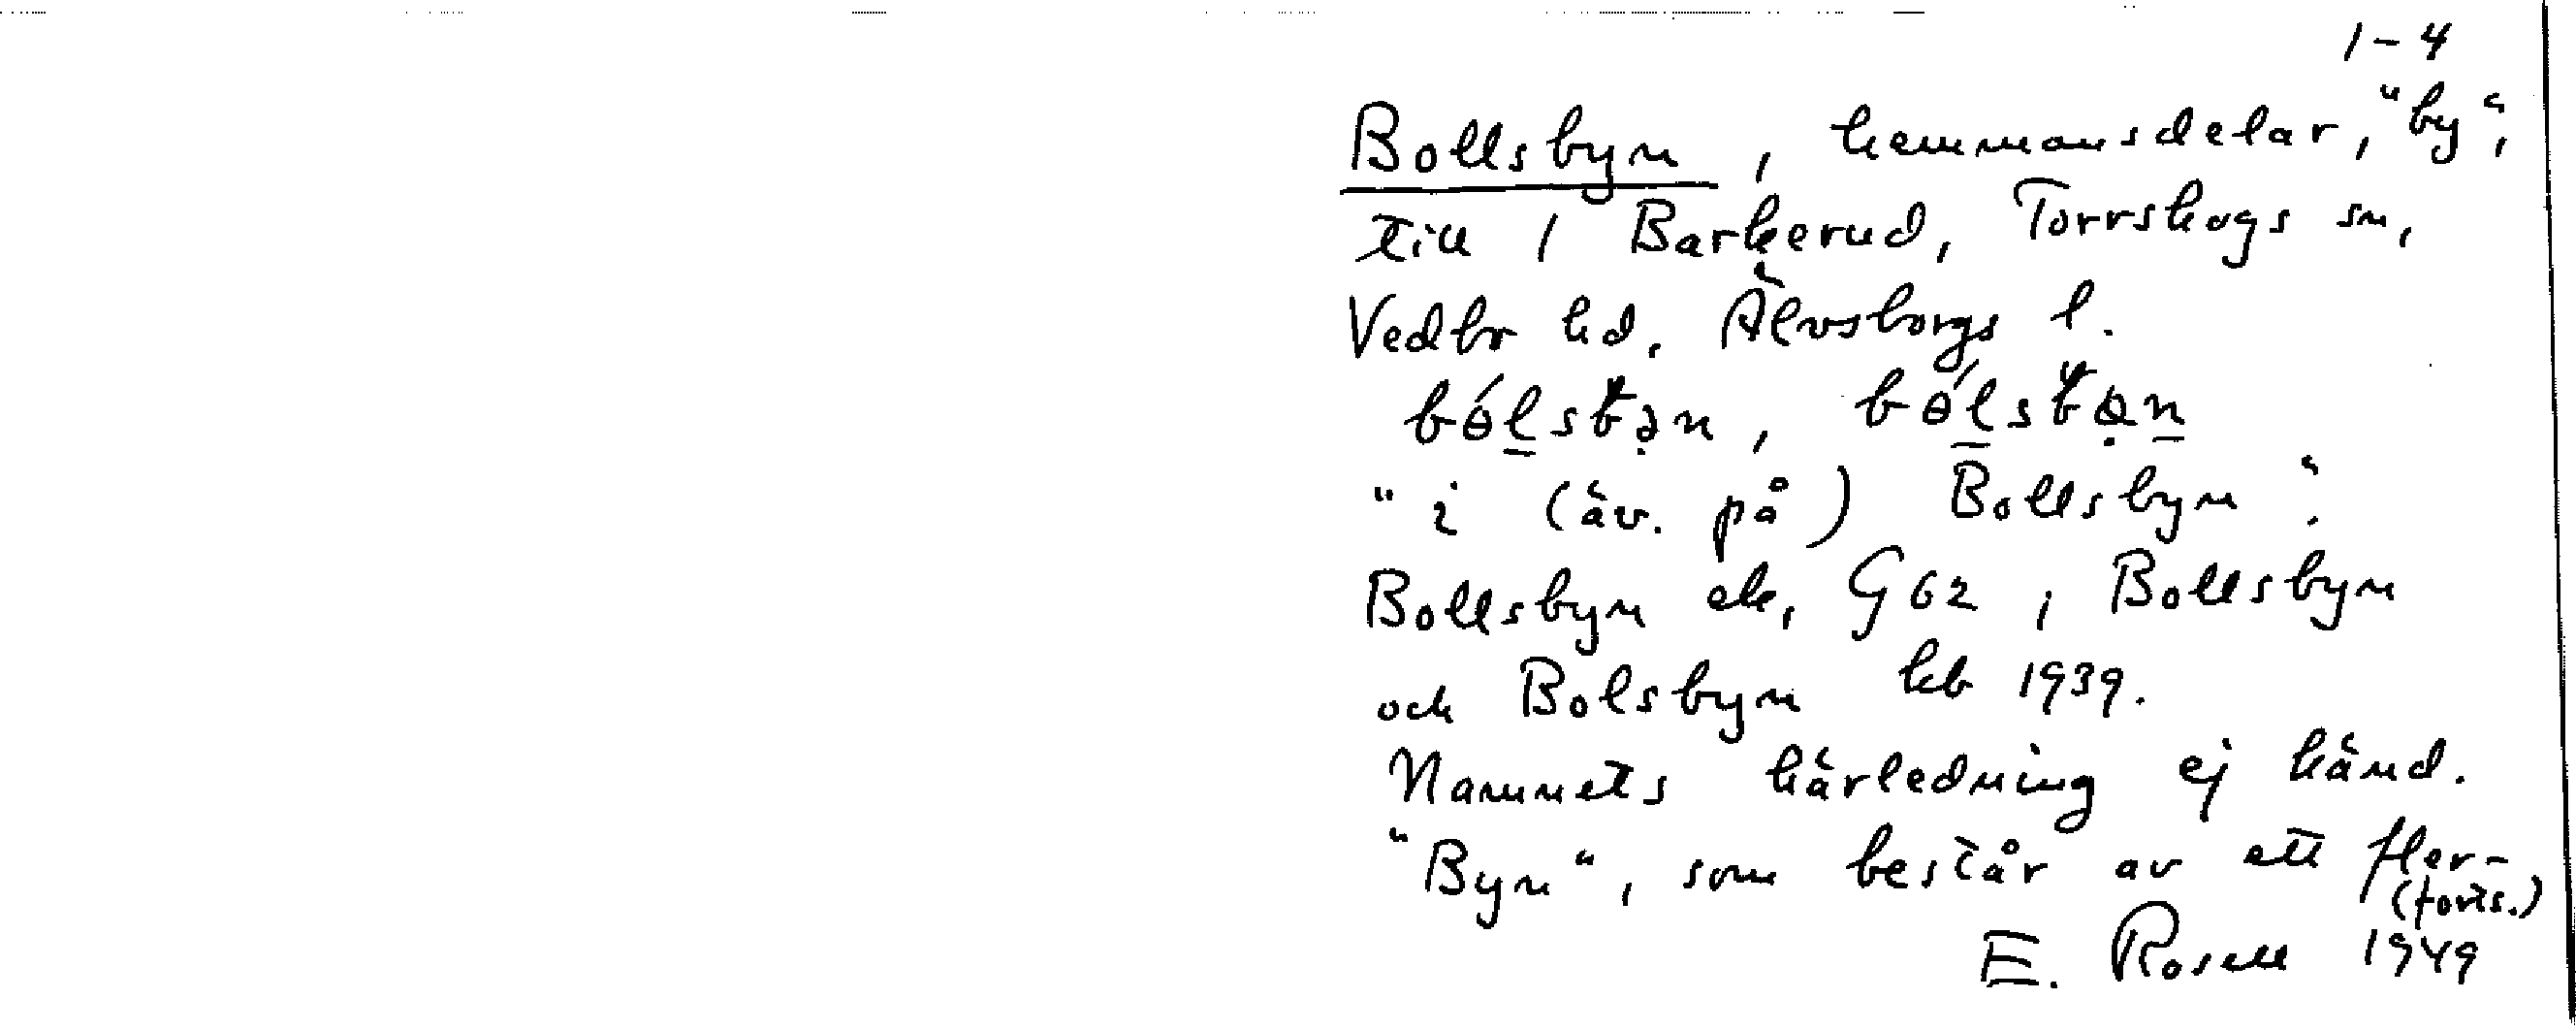 1-4
Bollsbyn, hemmansdelar, "by",
till 1 Barkerud, Torrskogs sn,
Vedbo hd, Älvsborgs l.
"i (äv. på) Bollsbyn".
Bollsbyn ek, G62, Bollsbyn
och Bolsbyn kb 1939.
Namnets härledning ej känd.
"Byn", som består av ett fler-
(forts.)
E. Rosell 1949